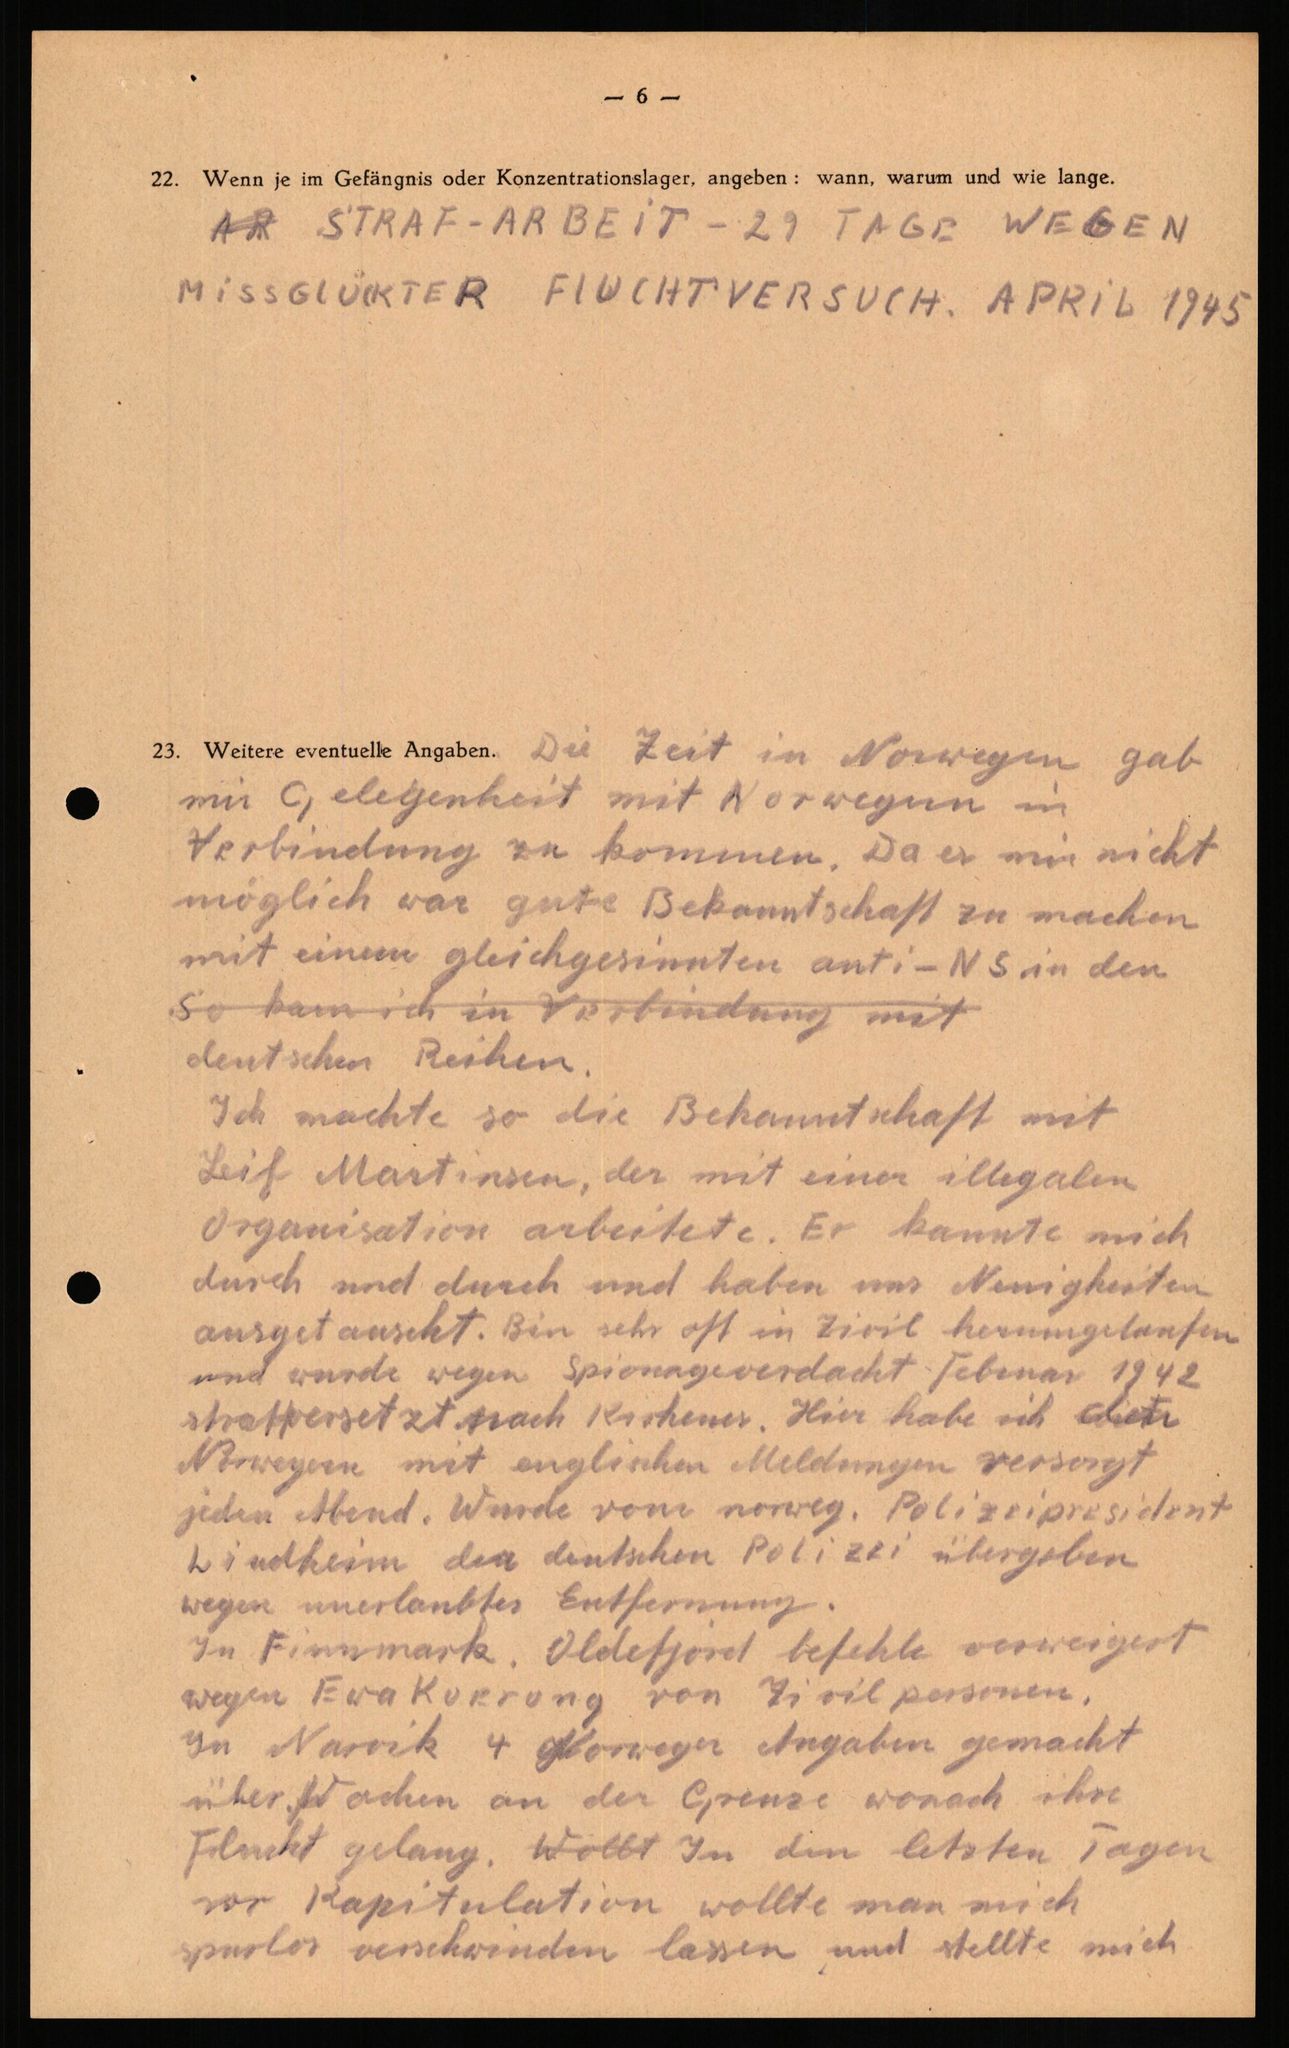 — 6 —
22. Wenn je im Gefängnis oder Konzentrationslager, angeben: wann, warum und wie lange.
STRAF-ARBEIT - 29 TAGE WEGEN
MISSGLÜCKTER FLUCHTVERSUCH. APRIL 1945
23. Weitere eventuelle Angaben. Die Zeit in Norwegen gab
mir Gelegenheit mit Norwegern in
Verbindung zu kommen. Da er mir nicht
möglich war gute Bekanntschaft zu machen
mit einem gleichgesinnten anti-NS in den
So kam ich in Verbindung mit
deutschen Reihen.
Ich machte so die Bekanntschaft mit
Leif Martinsen, der mit einer illegalen
Organisation arbeitete. Er kannte mich
durch und durch und haben uns Neuigkeiten
ausgetauscht. Bin sehr oft in Zivil herumgelaufen
und wurde wegen Spionageverdacht Februar 1942
strafversetzt nach Kirkenes. Hier habe ich
Norwegern mit englischen Meldungen versorgt
jeden Abend. Wurde vom norweg. Polizeipresident
Lindheim der deutschen Polizei übergeben
wegen unerlaubter Entfernung.
In Finnmark. Oldefjord befehle verweigert
wegen Evakuerung von Zivilpersonen.
In Narvik 4 Norweger Angaben gemacht
über Wachen an der Grenze wonach ihre
Flucht gelang. Wollt In den letzten Tagen
vor Kapitulation wollte man mich
spurlos verschwinden lassen und stellte mich